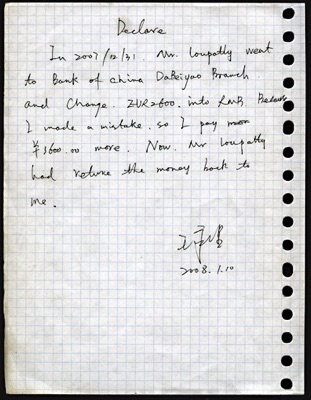 Declare
In 2007/12/31. Mr. Loupatty went
to Bank of China DaBeiyao Branch
and Change. EUR2600. into RMB. Because
I made a mistake. so I pay
¥3600.00 more. Now. Mr Loupatty
had return the money back to
me.
2008.1.10